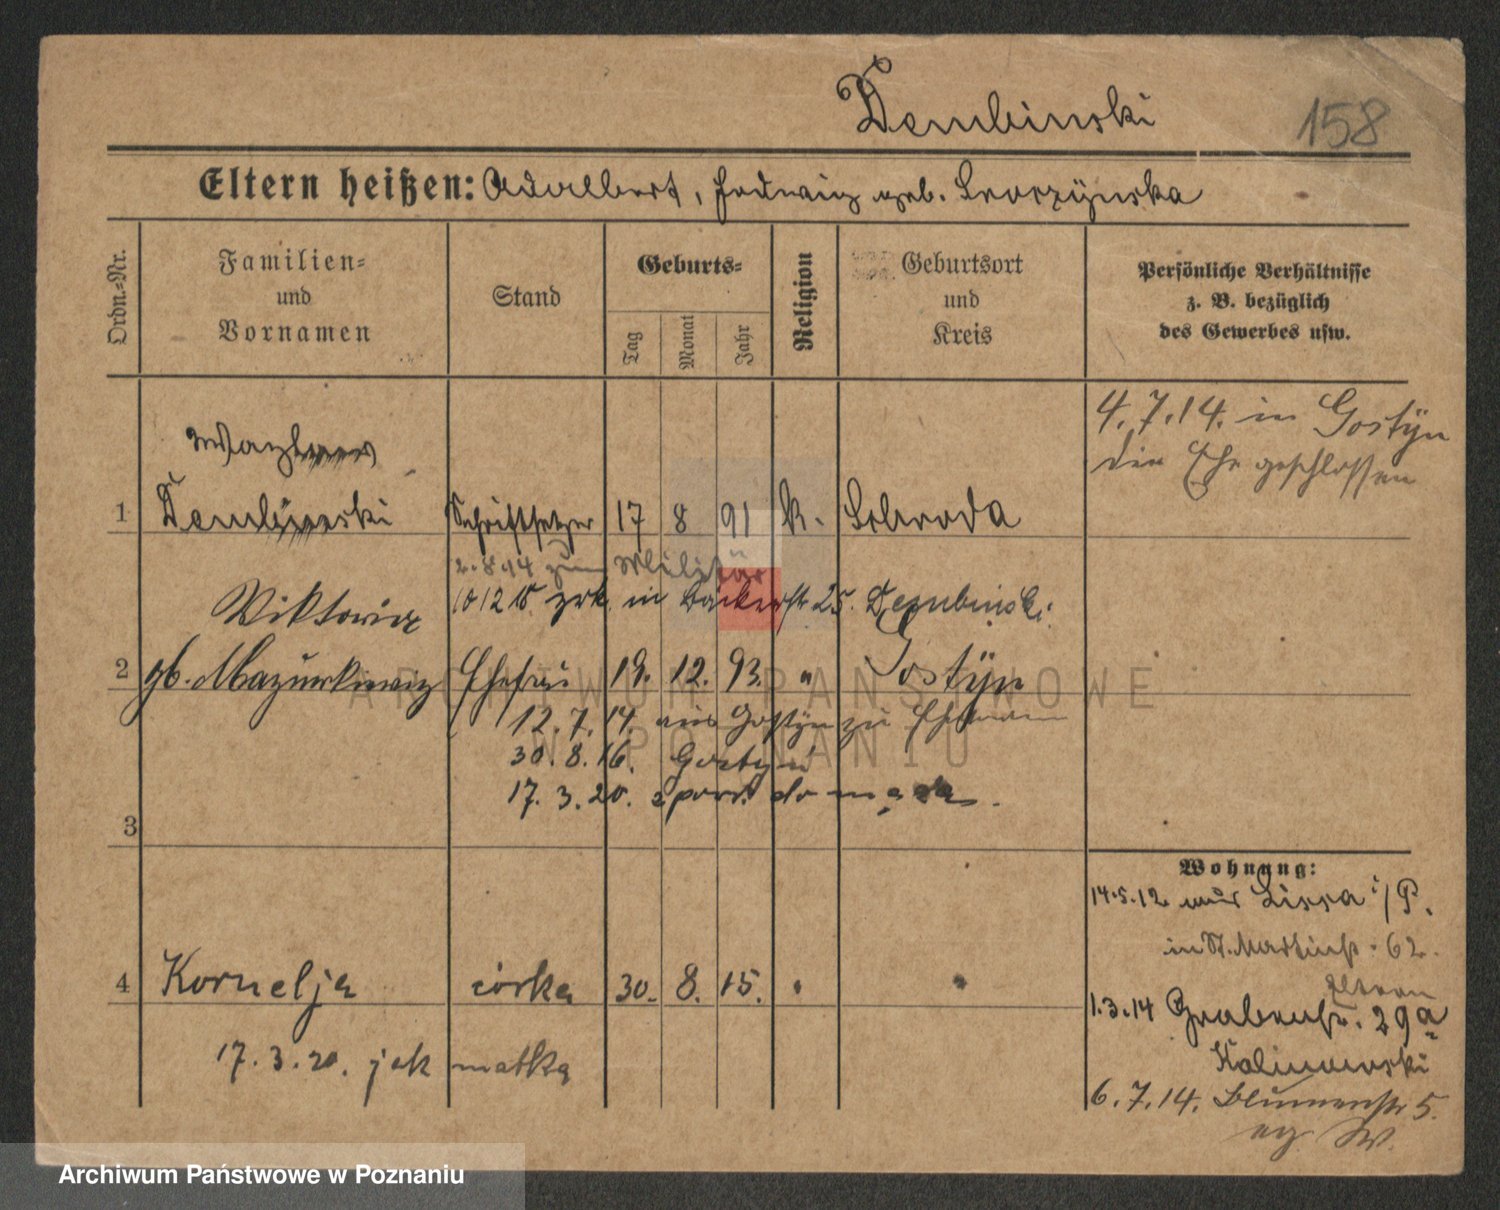 Dembinski
158
Eltern heißen: Adalbert, Hedwig geb. Skorzynska
Ordn.-Nr.
Familien-
und
Vornamen
Stand
Geburts-
Tag
Monat
Jahr
Religion
Geburtsort
und
Kreis
Persönliche Verhältnisse
z. B. bezüglich
des Gewerbes usw.
4.7.14. in Gostyn
die Ehe geschlossen
1 Dembinski Schriftsetzer 17 8 91 k. Schroda
2.8.14 zum Militär
10 12 18 zrk. in Bäckerstr 25. Dembinski
Wiktoria
2 gb. Mazurkiewicz Ehefrau 19. 12. 93. " Gostyn
12.7.14. aus Gostyn zu Ehemann
30.8.16. Gostyń
17.3.20. z powr. do męża.
3
Wohnung:
14.5.12 aus Lissa i/P.
in St. Martinstr. 62.
Eltern
4 Kornelja córka 30. 8. 15. "
1.3.14 Grabenstr. 29a
Kalinowski
17.3.20. jak matka
6.7.14. Blumenstr 5.
eg. W.
ARCHIWUM PAŃSTWOWE
W POZNANIU
Archiwum Państwowe w Poznaniu